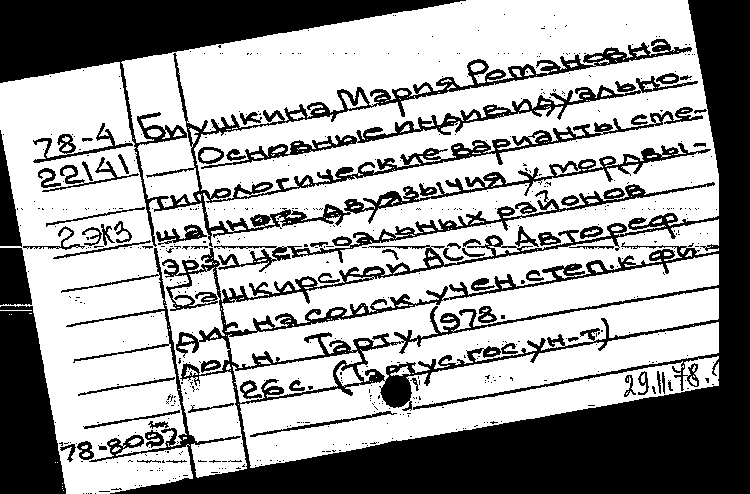 78-4
22141
2 экз
Биушкина, Мария Романовна.
Основные индивидуально-
типологические варианты сме-
шанного двуязычия у мордвы-
эрзи центральных районов
Башкирской АССР. Автореф.
дис. на соиск. учен. степ. к. фи
лол. н. Тарту, 1978.
26 с. (Тартус. гос. ун-т)
29.11.78.
78-8097а